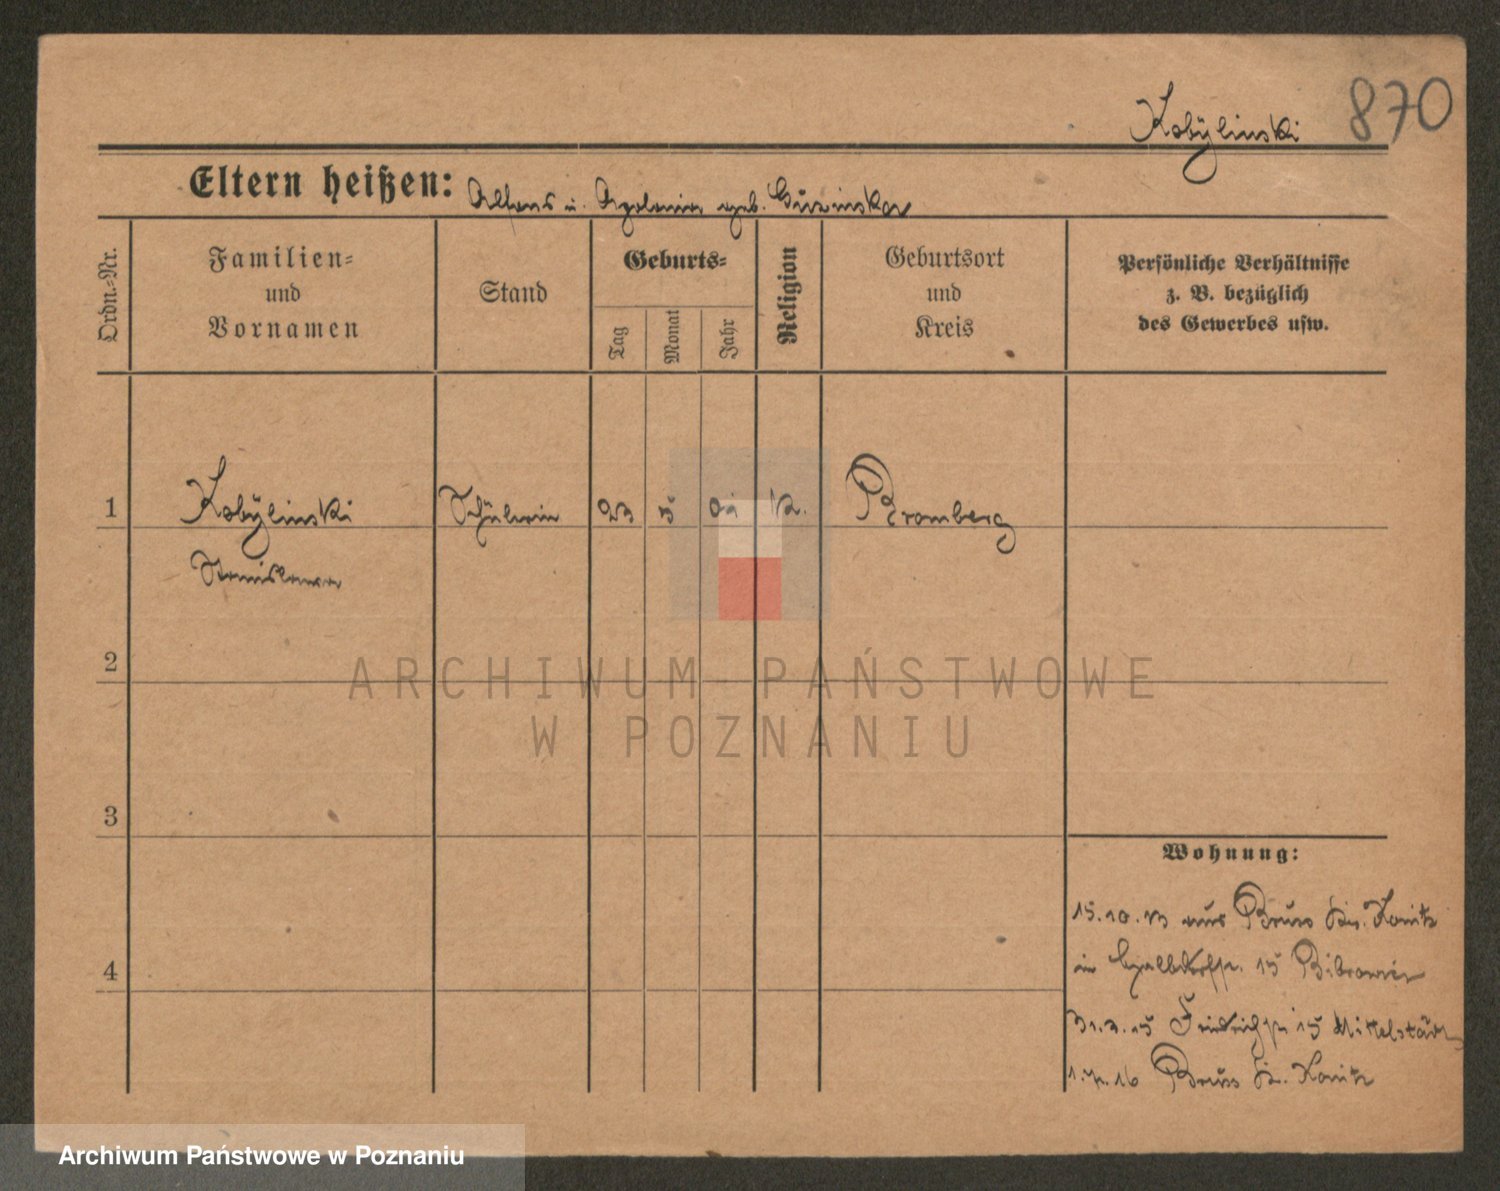 Kobylinski 870
Eltern heißen: Alfons u. Apolonia geb.
Ordn.-Nr.
Familien-
und
Vornamen
Stand
Geburts-
Tag
Monat
Jahr
Religion
Geburtsort
und
Kreis
Persönliche Verhältnisse
z. B. bezüglich
des Gewerbes usw.
1 Kobylinski Schülerin 23 5 01 K. Bromberg
Stanislawa
2
3
4
ARCHIWUM PAŃSTWOWE
W POZNANIU
Wohnung:
15.10.13 aus Bruss Krs. Konitz
in 15
15 Mittelstädt
16 Bruss Kr. Konitz
Archiwum Państwowe w Poznaniu